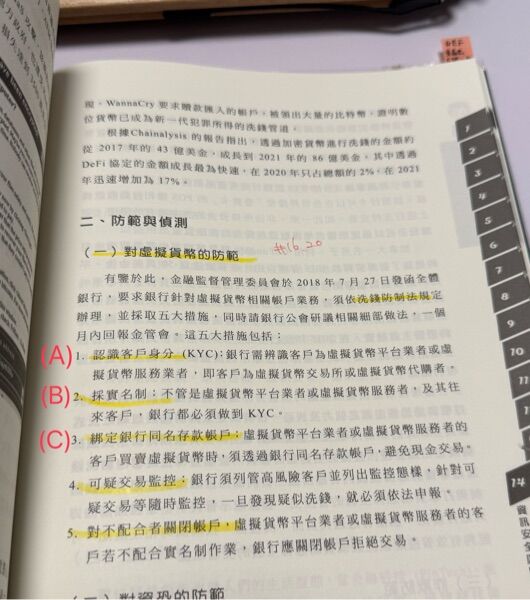 現。WannaCry 要求贖款匯入的帳戶，被領出大量的比特幣，證明數
位貨幣已成為新一代犯罪所得的洗錢管道。
根據 Chainalysis 的報告指出，透過加密貨幣進行洗錢的金額約
從 2017 年的 43 億美金，成長到 2021 年的 86 億美金。其中透過
DeFi 協定的金額成長最為快速，在 2020 年只占總額的 2%，在 2021
年迅速增加為 17%。
二、防範與偵測
（一）對虛擬貨幣的防範
#16.20
有鑒於此，金融監督管理委員會於 2018 年 7 月 27 日發函全體
銀行，要求銀行針對虛擬貨幣相關帳戶業務，須依洗錢防制法規定
辦理，並採取五大措施，同時請銀行公會研議相關細部做法，一個
月內回報金管會。這五大措施包括：
(A) 1. 認識客戶身分 (KYC)：銀行需辨識客戶為虛擬貨幣平台業者或虛
擬貨幣服務業者，即客戶為虛擬貨幣交易所或虛擬貨幣代購者。
(B) 2. 採實名制：不管是虛擬貨幣平台業者或虛擬貨幣服務者，及其往
來客戶，銀行都必須做到 KYC。
(C) 3. 綁定銀行同名存款帳戶：虛擬貨幣平台業者或虛擬貨幣服務者的
客戶買賣虛擬貨幣時，須透過銀行同名存款帳戶，避免現金交易。
4. 可疑交易監控：銀行須列管高風險客戶並列出監控態樣，針對可
疑交易等隨時監控，一旦發現疑似洗錢，就必須依法申報。
5. 對不配合者關閉帳戶，虛擬貨幣平台業者或虛擬貨幣服務者的客
戶若不配合實名制作業，銀行應關閉帳戶拒絕交易。
（二）對資恐的防範
1
2
3
4
5
6
7
8
9
10
11
12
13
14
資訊安全